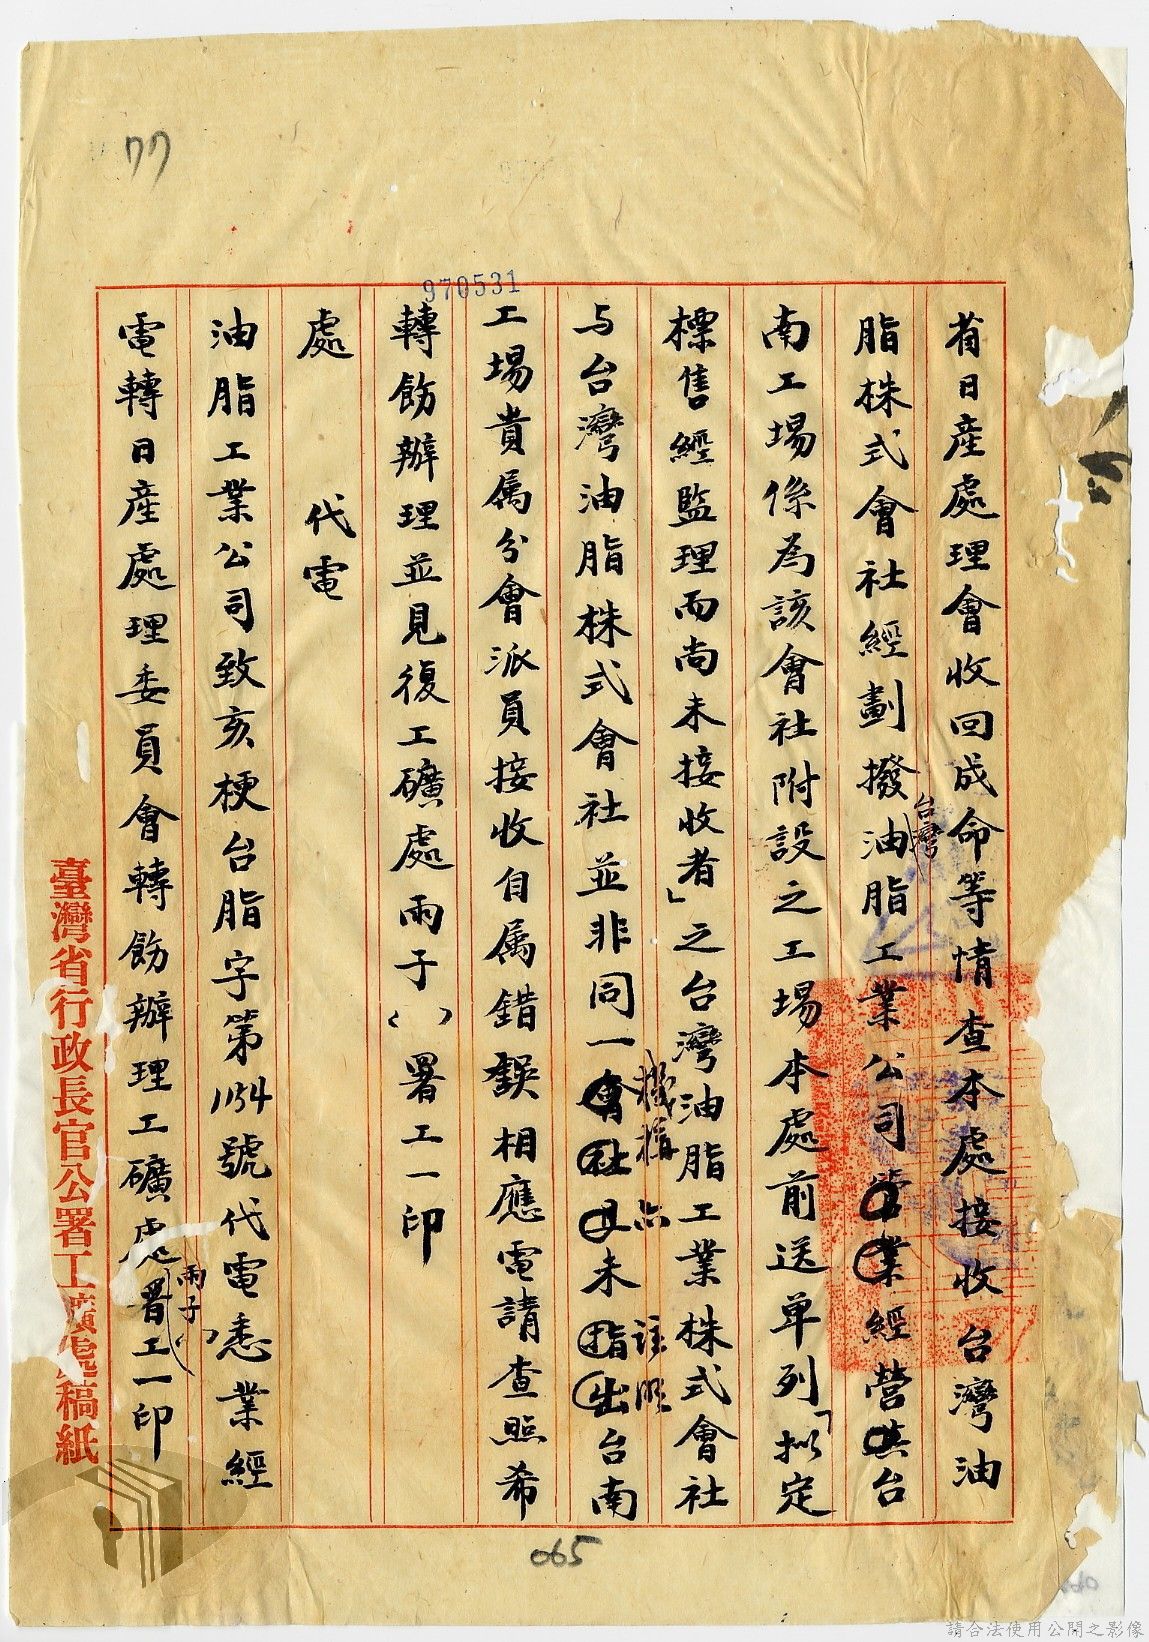 77
970531
省日産處理會收回成命等情查本處接收台灣油
脂株式會社經劃撥台灣油脂工業公司營業經營其台
南工場係為該會社附設之工場本處前送单列「拟定
標售經監理而尚未接收者」之台灣油脂工業株式會社
与台灣油脂株式會社並非同一會社且未指出台南
機構亦註明
工場貴属分會派員接收自属錯誤相應電請查照希
轉飭辦理並見復工礦處雨子()署工一印
處 代電
油脂工業公司致亥梗台脂字第1154號代電悉業經
電轉日産處理委員會轉飭辦理工礦處雨子()署工一印
臺灣省行政長官公署工礦處稿紙
065
請合法使用公開之影像